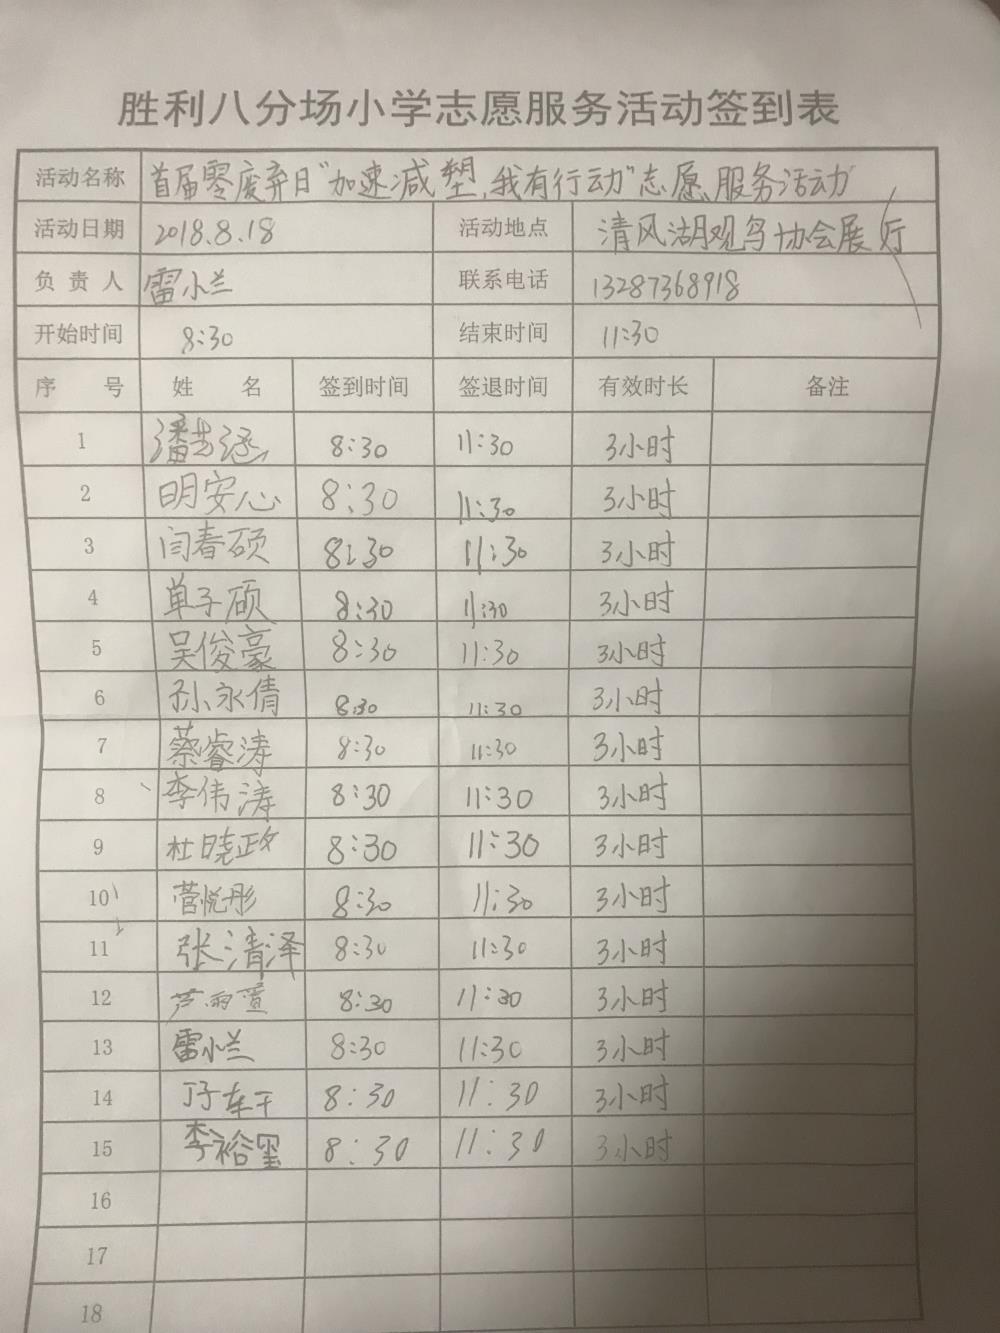 胜利八分场小学志愿服务活动签到表
活动名称 首届零废弃日"加速减塑,我有行动"志愿服务活动
活动日期 2018.8.18 活动地点 清风湖观鸟协会展厅
负责人 雷小兰 联系电话 13287368918
开始时间 8:30 结束时间 11:30
序号 姓名 签到时间 签退时间 有效时长 备注
1 潘 8:30 11:30 3小时
2 明安心 8:30 11:30 3小时
3 闫春硕 8:30 11:30 3小时
4 单子硕 8:30 11:30 3小时
5 吴俊豪 8:30 11:30 3小时
6 孙永倩 8:30 11:30 3小时
7 蔡睿涛 8:30 11:30 3小时
8 李伟涛 8:30 11:30 3小时
9 杜晓政 8:30 11:30 3小时
10 菅悦彤 8:30 11:30 3小时
11 张清泽 8:30 11:30 3小时
12 芦雨萱 8:30 11:30 3小时
13 雷小兰 8:30 11:30 3小时
14 8:30 11:30 3小时
15 李裕玺 8:30 11:30 3小时
16
17
18